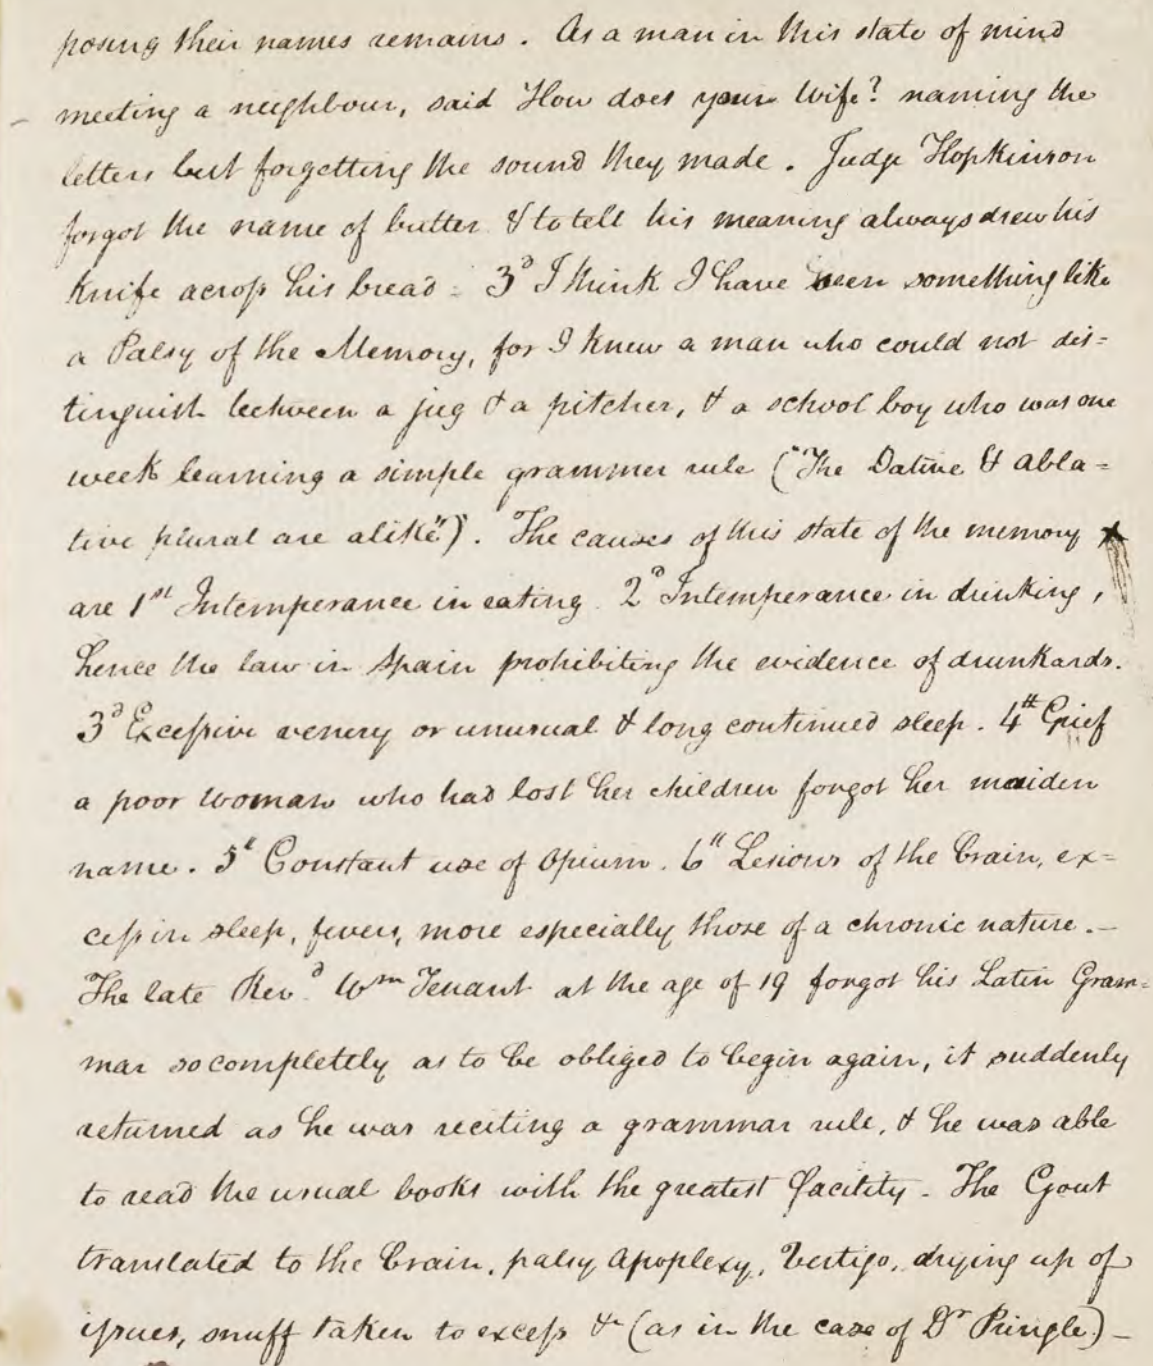 posing their names remains. As a man in this state of mind
meeting a neighbour, said How does your Wife? naming the
letters but forgetting the sound they made. Judge Hopkinson
forgot the name of butter & to tell his meaning always drew his
Knife across his bread - 3d I think I have seen something like
a Palsy of the Memory, for I knew a man who could not dis=
tinguish between a jug & a pitcher, & a school boy who was one
week learning a simple grammer rule ("The Dative & abla=
tive plural are alike"). The causes of this state of the memory
are 1st Intemperance in eating 2d Intemperance in drinking,
hence the law in Spain prohibiting the evidence of drunkards.
3d Excessive venery or unusual & long continued sleep. 4th Grief
a poor woman who had lost her children forgot her maiden
name. 5t Constant use of Opium. 6th Lesions of the brain, ex=
cess in sleep, fevers, more especially those of a chronic nature.-
The late Revd. Wm Tenant at the age of 19 forgot his Latin Gram=
mar so completely as to be obliged to begin again, it suddenly
returned as he was reciting a grammar rule, & he was able
to read the usual books with the greatest facility - The Gout
translated to the brain, palsy Apoplexy, Vertigo, drying up of
issues, snuff taken to excess & (as in the case of Dr Pringle) -